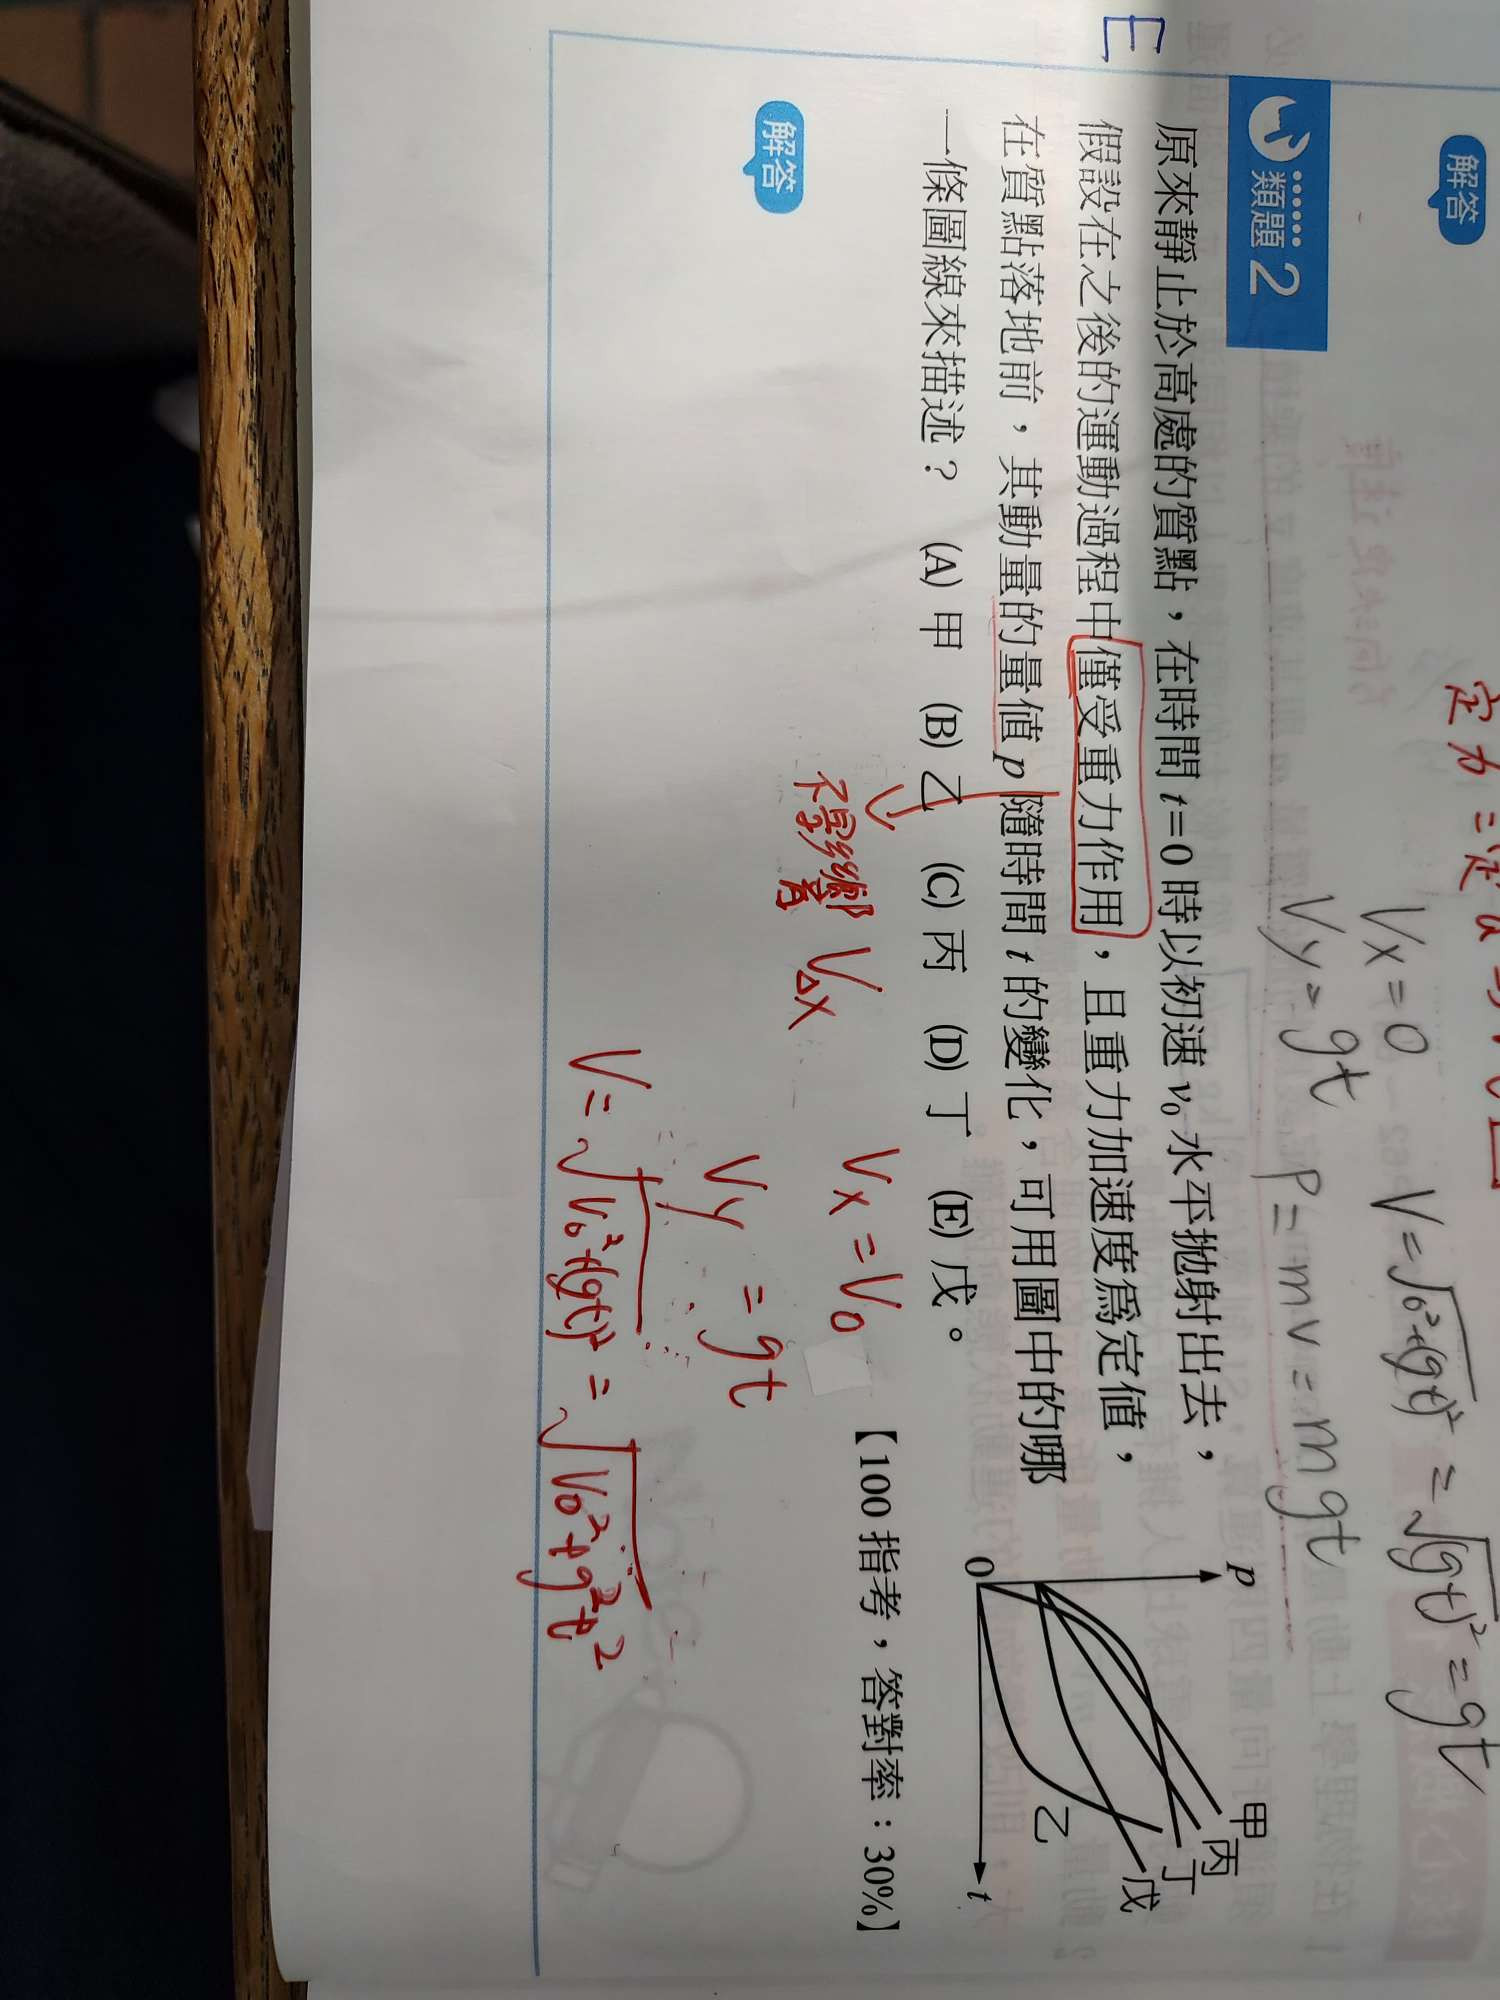 解答
定力=定a
Vx=0
Vy=gt
V=√0²+(gt)²=√(gt)²=gt
P=mv=mgt
類題2
E
原來靜止於高處的質點，在時間 t=0 時以初速 v₀ 水平拋射出去，
假設在之後的運動過程中僅受重力作用，且重力加速度為定值，
在質點落地前，其動量的量值 p 隨時間 t 的變化，可用圖中的哪
一條圖線來描述？ (A) 甲 (B) 乙 (C) 丙 (D) 丁 (E) 戊。
【100 指考，答對率：30%】
p
0
t
甲
丙
丁
戊
乙
解答
不影響
Vx
Vx=V₀
Vy=gt
V=√V₀²+(gt)²=√V₀²+g²t²